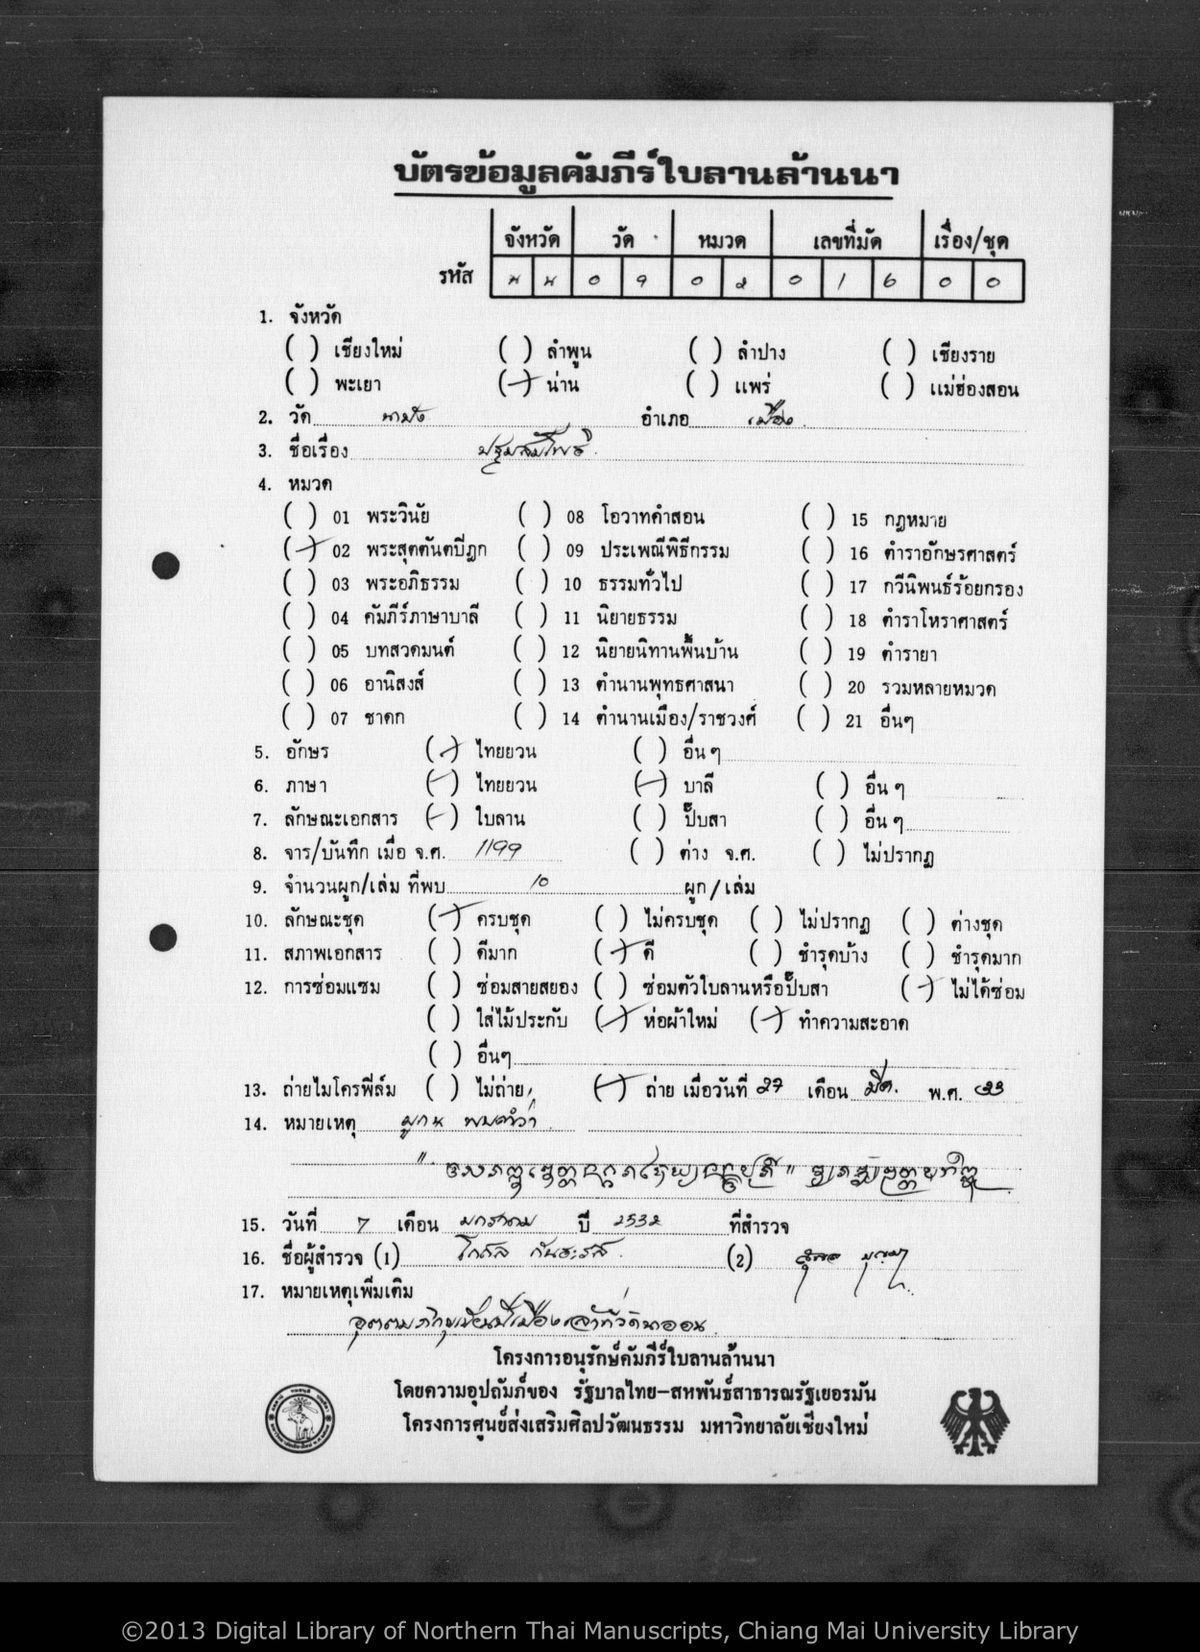 บัตรข้อมูลคัมภีร์ใบลานล้านนา
จังหวัด วัด หมวด เลขที่มัด เรื่อง/ชุด
รหัส น น 0 9 0 2 0 1 6 0 0
1. จังหวัด
( ) เชียงใหม่ ( ) ลำพูน ( ) ลำปาง ( ) เชียงราย
( ) พะเยา (/) น่าน ( ) แพร่ ( ) แม่ฮ่องสอน
2. วัด นาปัง อำเภอ เมือง
3. ชื่อเรื่อง ปฐมสมโพธิ
4. หมวด
( ) 01 พระวินัย ( ) 08 โอวาทคำสอน ( ) 15 กฎหมาย
(/) 02 พระสุตตันตปิฎก ( ) 09 ประเพณีพิธีกรรม ( ) 16 ตำราอักษรศาสตร์
( ) 03 พระอภิธรรม ( ) 10 ธรรมทั่วไป ( ) 17 กวีนิพนธ์ร้อยกรอง
( ) 04 คัมภีร์ภาษาบาลี ( ) 11 นิยายธรรม ( ) 18 ตำราโหราศาสตร์
( ) 05 บทสวดมนต์ ( ) 12 นิยายนิทานพื้นบ้าน ( ) 19 ตำรายา
( ) 06 อานิสงส์ ( ) 13 ตำนานพุทธศาสนา ( ) 20 รวมหลายหมวด
( ) 07 ชาดก ( ) 14 ตำนานเมือง/ราชวงศ์ ( ) 21 อื่นๆ
5. อักษร (/) ไทยยวน ( ) อื่น ๆ
6. ภาษา (/) ไทยยวน (/) บาลี ( ) อื่น ๆ
7. ลักษณะเอกสาร (/) ใบลาน ( ) ปั๊บสา ( ) อื่น ๆ
8. จาร/บันทึก เมื่อ จ.ศ. 1199 ( ) ต่าง จ.ศ. ( ) ไม่ปรากฏ
9. จำนวนผูก/เล่ม ที่พบ 10 ผูก/เล่ม
10. ลักษณะชุด (/) ครบชุด ( ) ไม่ครบชุด ( ) ไม่ปรากฏ ( ) ต่างชุด
11. สภาพเอกสาร ( ) ดีมาก (/) ดี ( ) ชำรุดบ้าง ( ) ชำรุดมาก
12. การซ่อมแซม ( ) ซ่อมสายสยอง ( ) ซ่อมตัวใบลานหรือปั๊บสา (/) ไม่ได้ซ่อม
( ) ใส่ไม้ประกับ (/) ห่อผ้าใหม่ (/) ทำความสะอาด
( ) อื่นๆ
13. ถ่ายไมโครฟิล์ม ( ) ไม่ถ่าย (/) ถ่าย เมื่อวันที่ 27 เดือน มีค. พ.ศ. 33
14. หมายเหตุ
15. วันที่ 7 เดือน มกราคม ปี 2532 ที่สำรวจ
16. ชื่อผู้สำรวจ (1) โกศล กันธะรส (2)
17. หมายเหตุเพิ่มเติม
โครงการอนุรักษ์คัมภีร์ใบลานล้านนา
โดยความอุปถัมภ์ของ รัฐบาลไทย-สหพันธ์สาธารณรัฐเยอรมัน
โครงการศูนย์ส่งเสริมศิลปวัฒนธรรม มหาวิทยาลัยเชียงใหม่
©2013 Digital Library of Northern Thai Manuscripts, Chiang Mai University Library